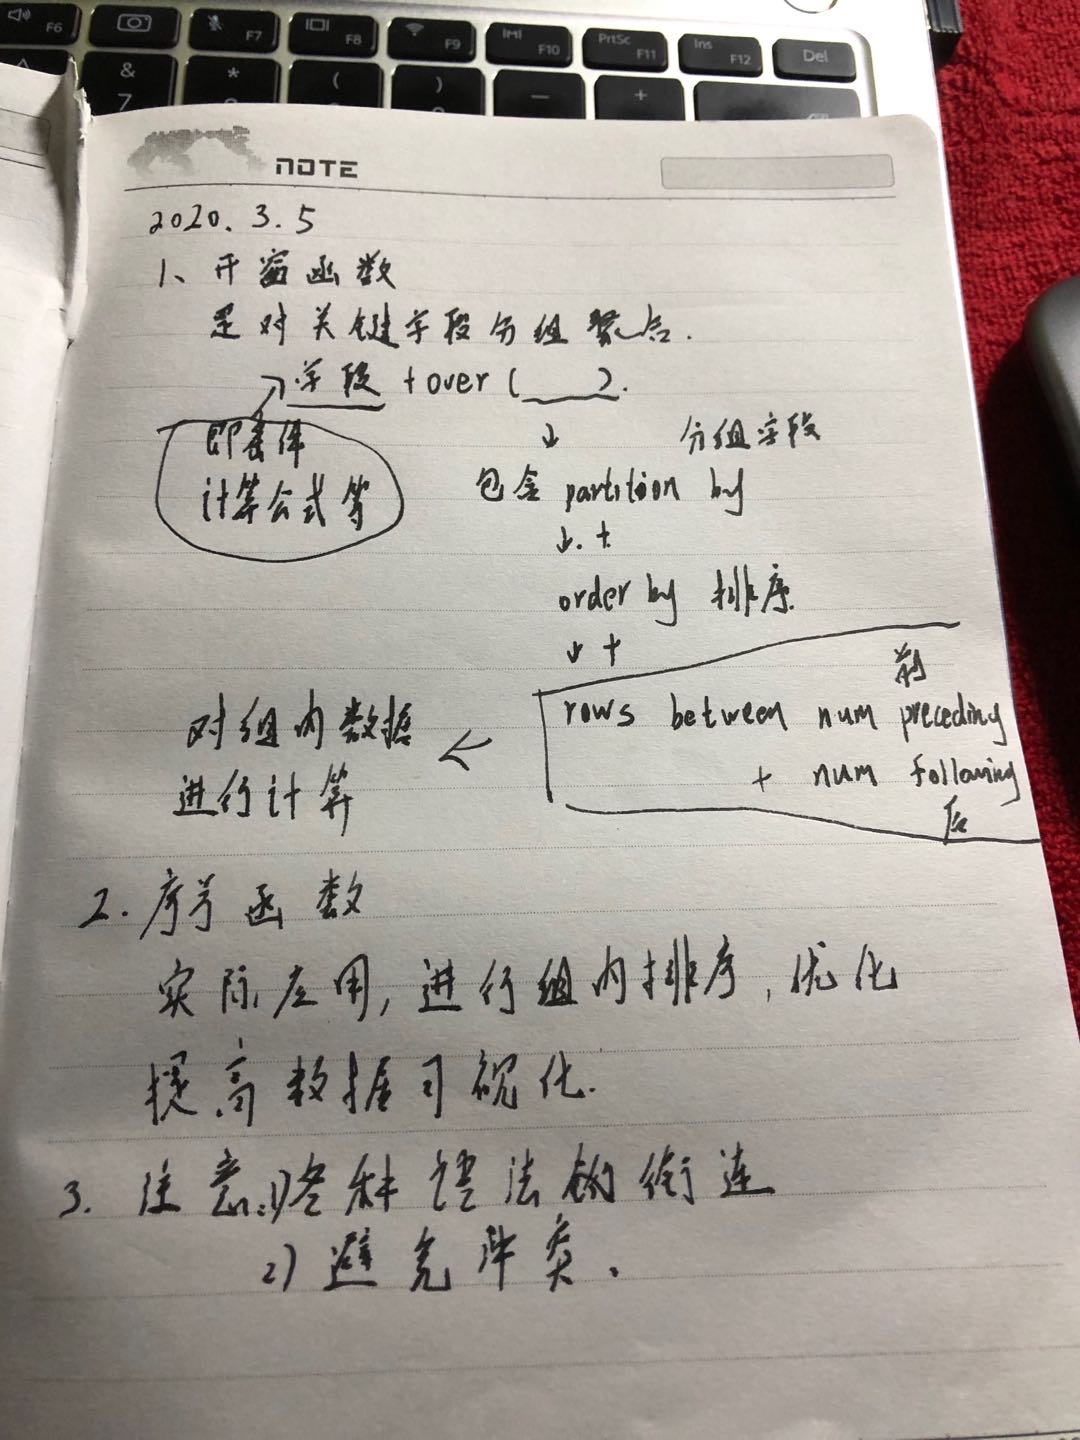 F6
F7
F8
F9
F10
PrtSc
F11
Ins
F12
Del
&
7
*
(
)
—
+
NOTE
2020.3.5
1、开窗函数
是对关键字段分组聚合.
字段 + over (____).
即条件
计算公式等
↓ 分组字段
包含 partition by
↓. +
order by 排序.
↓ +
前
rows between num preceding
+ num following
后
对组内数据 ←
进行计算
2. 序号函数
实际应用, 进行组内排序, 优化
提高数据可视化.
3. 注意:1)各种语法的衔连
2) 避免种类.